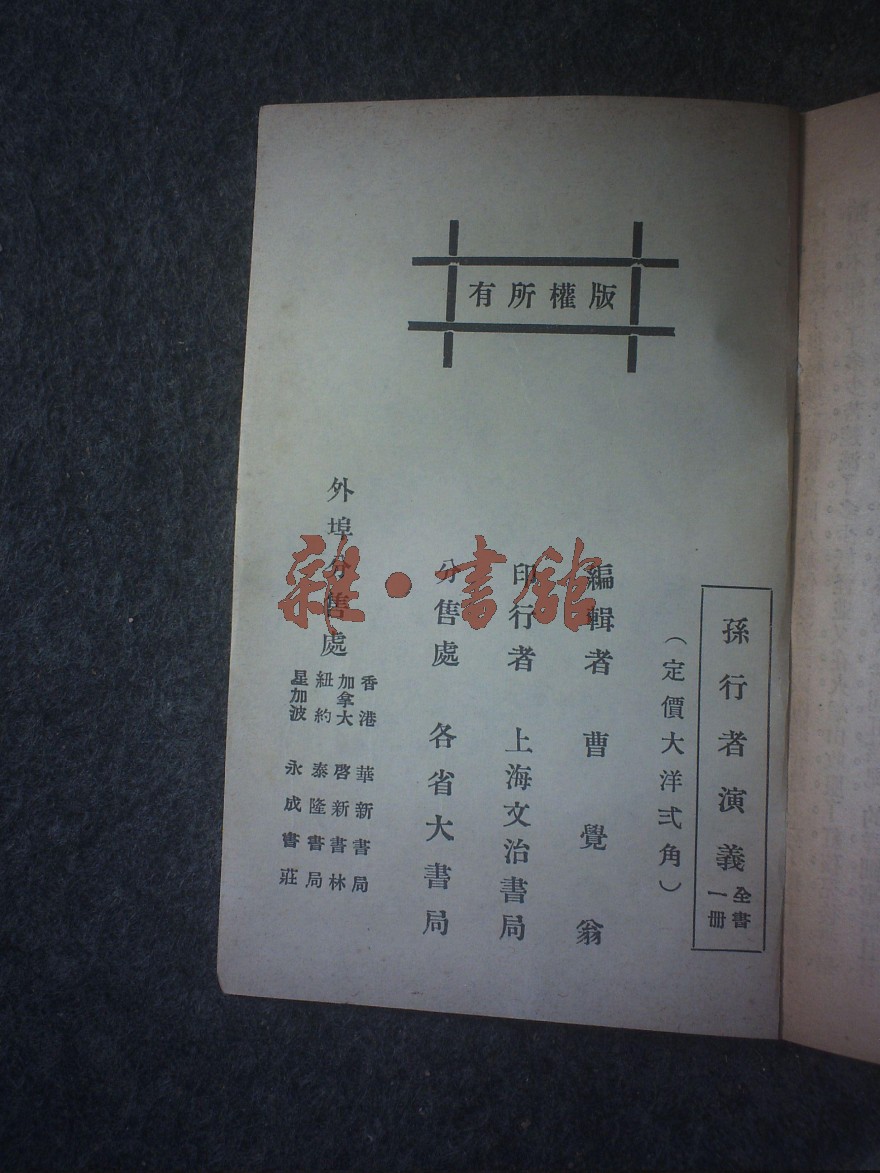 版權所有
孫行者演義 全書一冊
（定價大洋弍角）
編輯者 曹覺翁
印行者 上海文治書局
分售處 各省大書局
外埠分售處
香港 華新書局
加拿大 啓新書林
紐約 泰隆書局
星加波 永成書莊
雜·書館